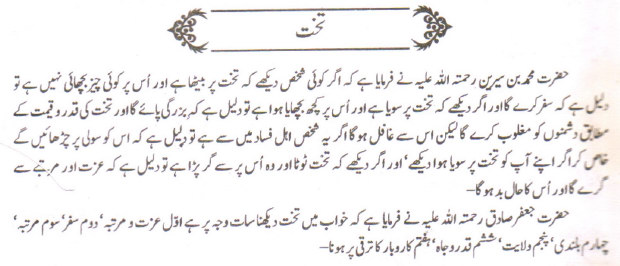 تخت
حضرت محمد بن سیرین رحمتہ اللہ علیہ نے فرمایا ہے کہ اگر کوئی شخص دیکھے کہ تخت پر بیٹھا ہے اور اُس پر کوئی چیز بچھائی نہیں ہے تو
دلیل ہے کہ سفر کرے گا اور اگر دیکھے کہ تخت پر سویا ہے اور اُس پر کچھ بچھایا ہوا ہے تو دلیل ہے کہ بزرگی پائے گا اور تخت کی قدر و قیمت کے
مطابق دشمنوں کو مغلوب کرے گا لیکن اس سے غافل ہو گا اگر یہ شخص اہل فساد میں سے ہے تو دلیل ہے کہ اس کو سولی پر چڑھائیں گے
خاص کر اگر اپنے آپ کو تخت پر سویا ہوا دیکھے‘ اور اگر دیکھے کہ تخت ٹوٹا اور وہ اُس پر سے گر پڑا ہے تو دلیل ہے کہ عزت اور مرتبے سے
گرے گا اور اُس کا حال بد ہو گا–
حضرت جعفر صادق رحمتہ اللہ علیہ نے فرمایا ہے کہ خواب میں تخت دیکھنا سات وجہ پر ہے اوّل عزت و مرتبہ‘ دوم سفر‘ سوم مرتبہ‘
چہارم بلندی‘ پنجم ولایت‘ ششم قدر و جاہ‘ ہفتم کاروبار کا ترقی پر ہونا–